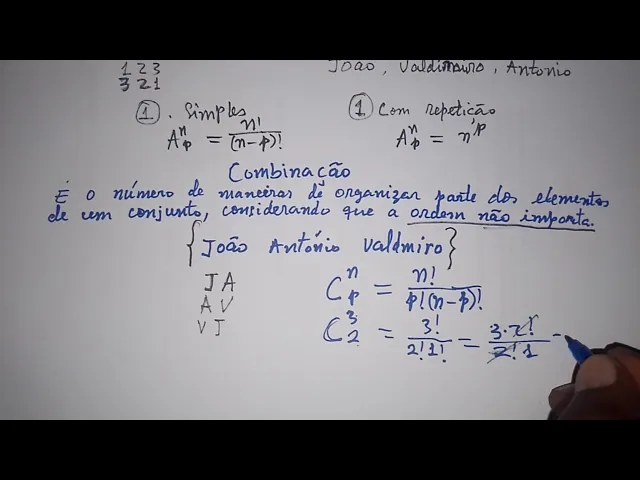 1 2 3
3 2 1
João, Valdimiro, Antonio
1. Simples
A^n_p = n!/(n-p)!
1 Com repetição
A^n_p = n^p
Combinação
É o número de maneiras de organizar parte dos elementos
de um conjunto, considerando que a ordem não importa.
{João António Valdmiro}
J A
A V
V J
C^n_p = n!/p!(n-p)!
C^3_2 = 3!/2!1! = 3·2!/2!1 =